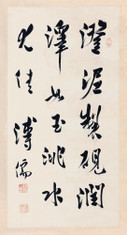 澄泥製硯潤
澤如玉洮水
尤佳 溥儒